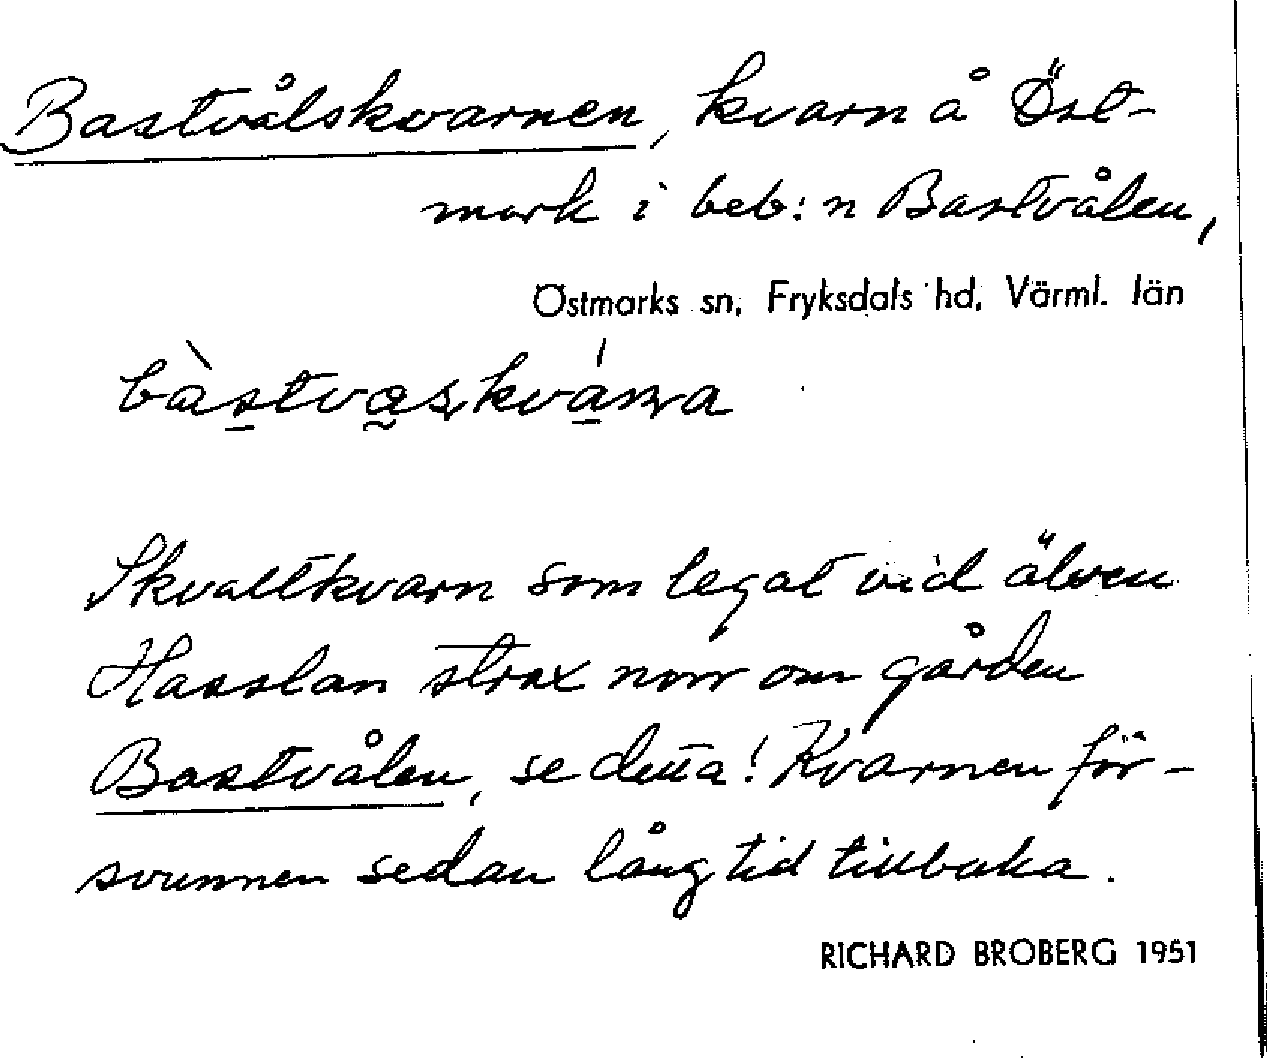 Bastvålskvarnen, kvarn å Öst-
mark i beb:n Bastvålen,
Östmarks sn, Fryksdals hd, Värml. län
bàstvaskvánna
Skvaltkvarn som legat vid älven
Hasslan strax norr om gården
Bastvålen, se detta! Kvarnen för-
svunnen sedan lång tid tillbaka.
RICHARD BROBERG 1951